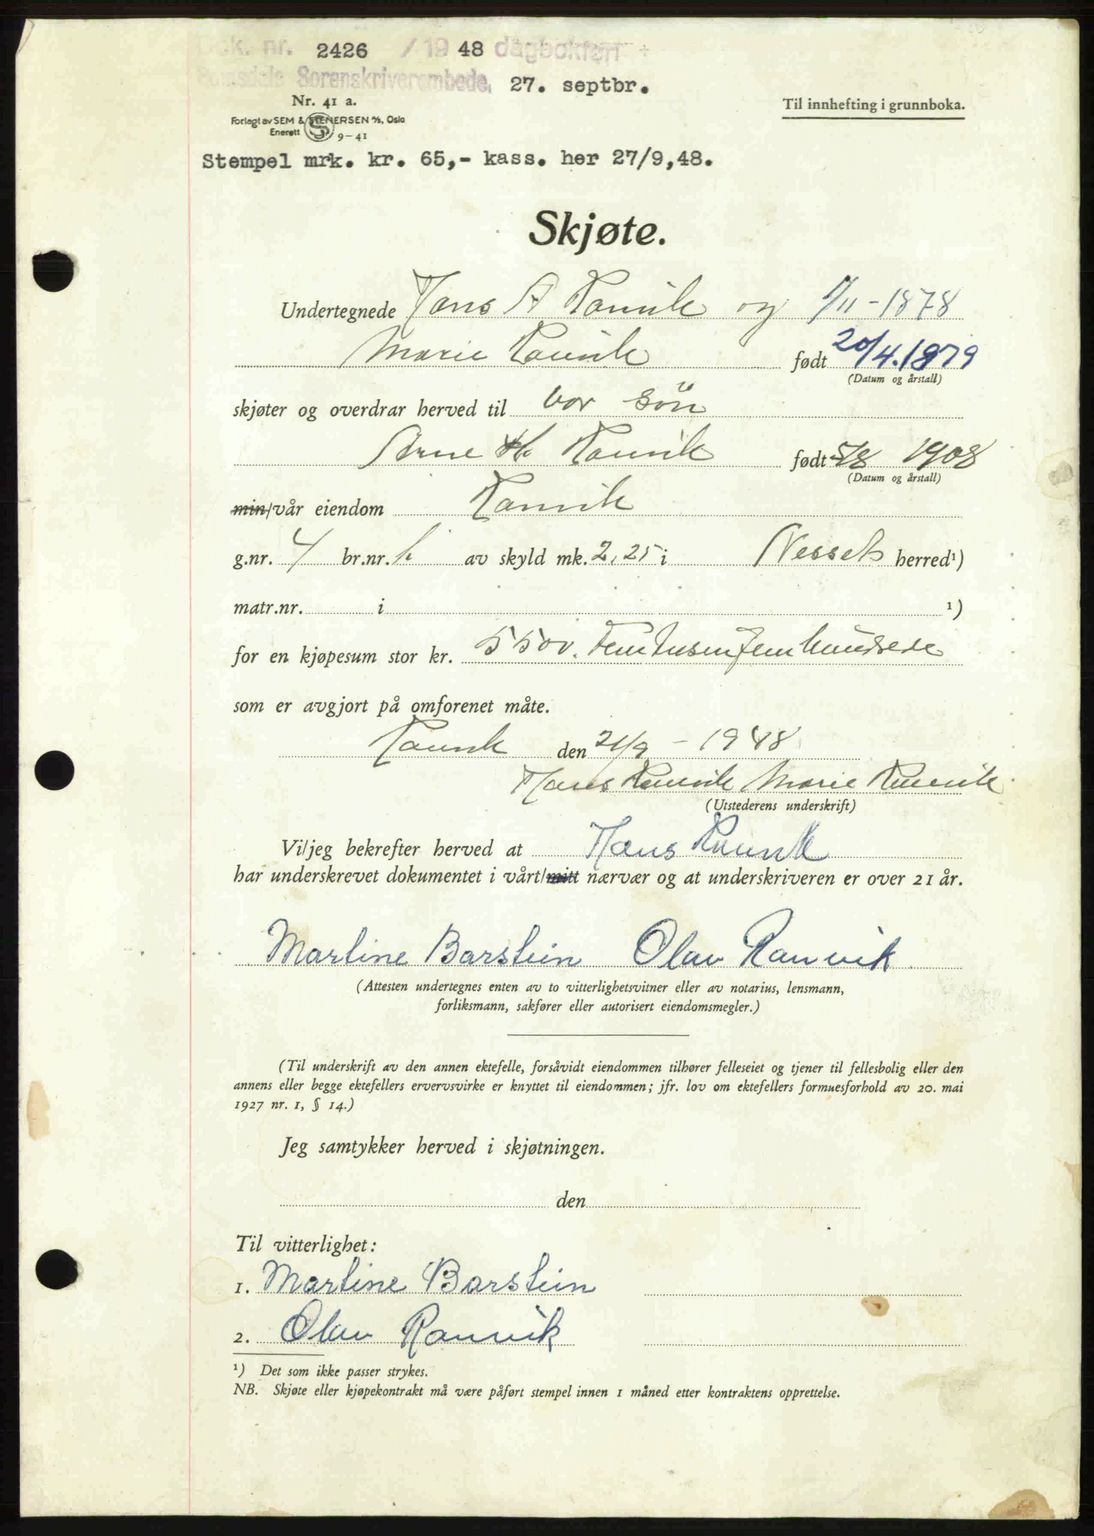 Dok. nr. 2426 / 19 48 dagbokført
Romsdals Sorenskriverembede, 27. septbr.
Nr. 41 a.
Forlagt av SEM & STENERSEN A/S, Oslo
Enerett S 9-41
Til innhefting i grunnboka.
Stempel mrk. kr. 65,- kass. her 27/9,48.
Skjøte.
Undertegnede Hans A Ranvik og 1/11-1878
Marie Ranvik født 20/4.1879
(Datum og årstall)
skjøter og overdrar herved til vor søn
Arne H Ranvik født 5/8 1908
(Datum og årstall)
min/vår eiendom Ranvik
g.nr. 4 br.nr. av skyld mk. 2,25 i Nesset herred¹)
matr.nr. i ¹)
for en kjøpesum stor kr. 5500. Femtusenfemhundrede
som er avgjort på omforenet måte.
Ranvik den 21/9 - 1948
Hans Ranvik Marie Ranvik
(Utstederens underskrift)
Vi/jeg bekrefter herved at Hans Ranvik
har underskrevet dokumentet i vårt/mitt nærvær og at underskriveren er over 21 år.
Martine Barstein Olav Ranvik
(Attesten undertegnes enten av to vitterlighetsvitner eller av notarius, lensmann,
forliksmann, sakfører eller autorisert eiendomsmegler.)
(Til underskrift av den annen ektefelle, forsåvidt eiendommen tilhører felleseiet og tjener til fellesbolig eller den
annens eller begge ektefellers ervervsvirke er knyttet til eiendommen; jfr. lov om ektefellers formuesforhold av 20. mai
1927 nr. 1, § 14.)
Jeg samtykker herved i skjøtningen.
den
Til vitterlighet:
1. Martine Barstein
2. Olav Ranvik
¹) Det som ikke passer strykes.
NB. Skjøte eller kjøpekontrakt må være påført stempel innen 1 måned etter kontraktens opprettelse.